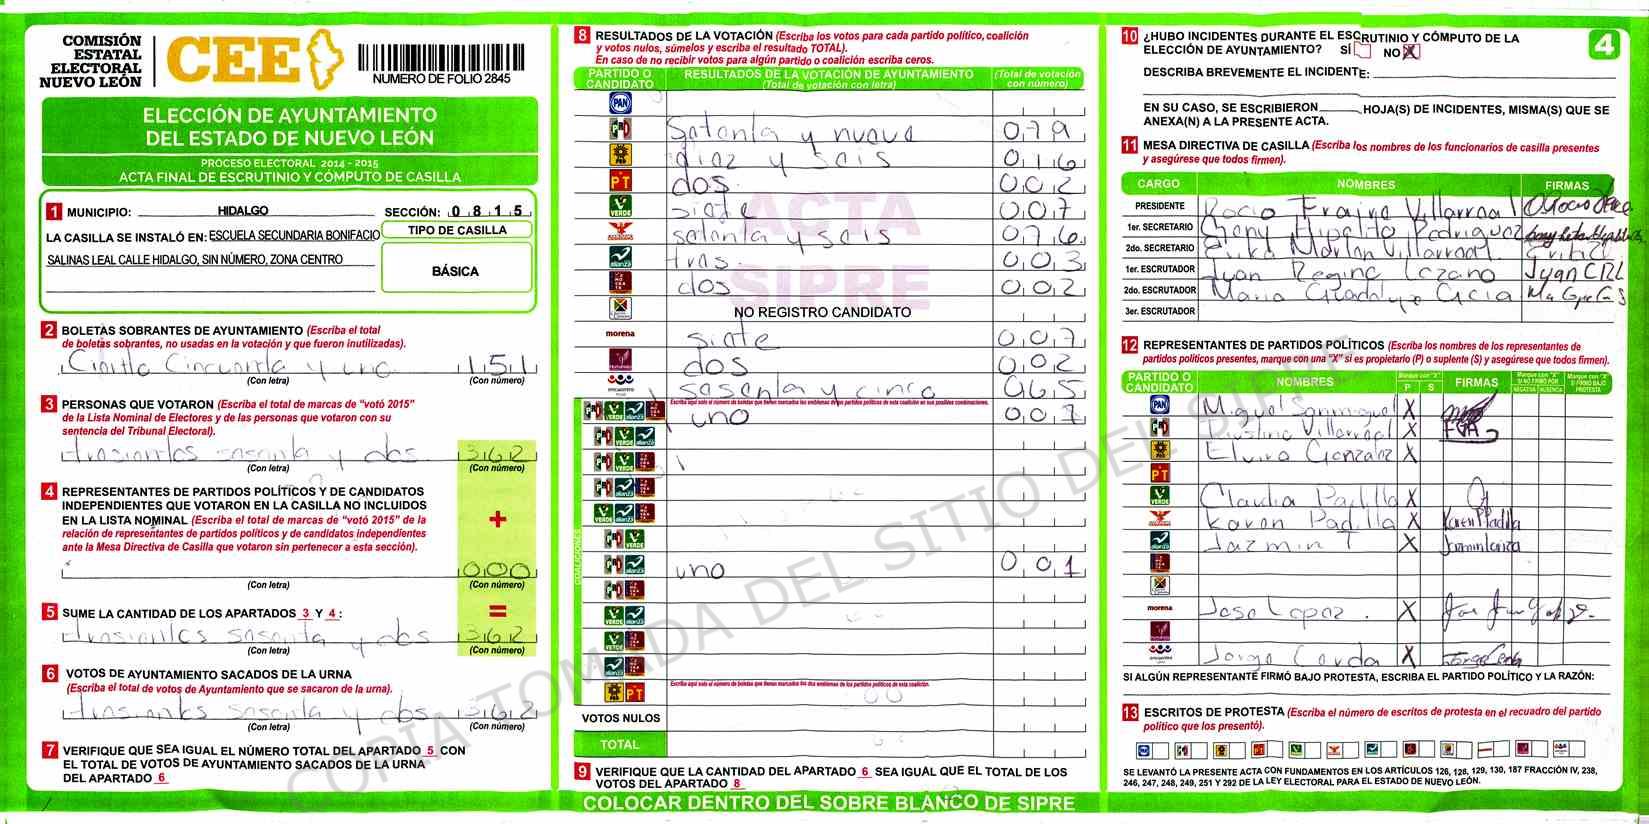 COMISIÓN
ESTATAL
ELECTORAL
NUEVO LEÓN
CEE
NUMERO DE FOLIO 2845
ELECCIÓN DE AYUNTAMIENTO
DEL ESTADO DE NUEVO LEÓN
PROCESO ELECTORAL 2014 - 2015
ACTA FINAL DE ESCRUTINIO Y CÓMPUTO DE CASILLA
1 MUNICIPIO: HIDALGO SECCIÓN: 0 8 1 5
LA CASILLA SE INSTALÓ EN: ESCUELA SECUNDARIA BONIFACIO
SALINAS LEAL CALLE HIDALGO, SIN NÚMERO, ZONA CENTRO
TIPO DE CASILLA
BÁSICA
2 BOLETAS SOBRANTES DE AYUNTAMIENTO (Escriba el total
de boletas sobrantes, no usadas en la votación y que fueron inutilizadas).
151
(Con letra) (Con número)
3 PERSONAS QUE VOTARON (Escriba el total de marcas de "votó 2015"
de la Lista Nominal de Electores y de las personas que votaron con su
sentencia del Tribunal Electoral).
sesenta y dos 362
(Con letra) (Con número)
4 REPRESENTANTES DE PARTIDOS POLÍTICOS Y DE CANDIDATOS
INDEPENDIENTES QUE VOTARON EN LA CASILLA NO INCLUIDOS
EN LA LISTA NOMINAL (Escriba el total de marcas de "votó 2015" de la
relación de representantes de partidos políticos y de candidatos independientes
ante la Mesa Directiva de Casilla que votaron sin pertenecer a esta sección).
+
000
(Con letra) (Con número)
=
5 SUME LA CANTIDAD DE LOS APARTADOS 3 Y 4:
sesenta y dos 362
(Con letra) (Con número)
6 VOTOS DE AYUNTAMIENTO SACADOS DE LA URNA
(Escriba el total de votos de Ayuntamiento que se sacaron de la urna).
sesenta y dos 362
(Con letra) (Con número)
7 VERIFIQUE QUE SEA IGUAL EL NÚMERO TOTAL DEL APARTADO 5 CON
EL TOTAL DE VOTOS DE AYUNTAMIENTO SACADOS DE LA URNA
DEL APARTADO 6
8 RESULTADOS DE LA VOTACIÓN (Escriba los votos para cada partido político, coalición
y votos nulos, súmelos y escriba el resultado TOTAL).
En caso de no recibir votos para algún partido o coalición escriba ceros.
PARTIDO O CANDIDATO RESULTADOS DE LA VOTACIÓN DE AYUNTAMIENTO (Total de votación con letra) (Total de votación con número)
PAN
PRI setenta y nueve 079
PRD diez y seis 016
PT dos 002
VERDE siete 007
setenta y seis 076
alianza tres 003
dos 002
NO REGISTRO CANDIDATO
morena siete 007
dos 002
sesenta y cinco 065
Escriba aquí solo el número de boletas que tienen marcados los emblemas de los partidos políticos de esta coalición en sus posibles combinaciones.
uno 007
COALICIONES
uno 001
Escriba aquí solo el número de boletas que tienen marcados los dos emblemas de los partidos políticos de esta coalición.
PRD PT
VOTOS NULOS
TOTAL
9 VERIFIQUE QUE LA CANTIDAD DEL APARTADO 6 SEA IGUAL QUE EL TOTAL DE LOS
VOTOS DEL APARTADO 8
COLOCAR DENTRO DEL SOBRE BLANCO DE SIPRE
ACTA
SIPRE
COPIA TOMADA DEL SITIO DEL SIPRE
4
10 ¿HUBO INCIDENTES DURANTE EL ESCRUTINIO Y CÓMPUTO DE LA
ELECCIÓN DE AYUNTAMIENTO? SÍ NO X
DESCRIBA BREVEMENTE EL INCIDENTE:
EN SU CASO, SE ESCRIBIERON HOJA(S) DE INCIDENTES, MISMA(S) QUE SE
ANEXA(N) A LA PRESENTE ACTA.
11 MESA DIRECTIVA DE CASILLA (Escriba los nombres de los funcionarios de casilla presentes
y asegúrese que todos firmen).
CARGO NOMBRES FIRMAS
PRESIDENTE Rocio Villarreal
1er. SECRETARIO Hipolito Rodriguez
2do. SECRETARIO Erika Villarreal Erika
1er. ESCRUTADOR Juan Regino Lozano
2do. ESCRUTADOR Maria Guadalupe
3er. ESCRUTADOR
12 REPRESENTANTES DE PARTIDOS POLÍTICOS (Escriba los nombres de los representantes de
partidos políticos presentes, marque con una "X" si es propietario (P) o suplente (S) y asegúrese que todos firmen).
PARTIDO O CANDIDATO NOMBRES Marque con "X" P S FIRMAS Marque con "X" SI NO FIRMÓ POR NEGATIVA AUSENCIA Marque con "X" SI FIRMÓ BAJO PROTESTA
PAN Miguel Sanmiguel X
PRI Villarreal X
PRD Elvira Gonzalez X
PT
VERDE Claudia Padilla X
Karen Padilla X Karen Padilla
alianza Jazmin T X
morena Jose Lopez X
Jorge Cerda X Jorge Cerda
SI ALGÚN REPRESENTANTE FIRMÓ BAJO PROTESTA, ESCRIBA EL PARTIDO POLÍTICO Y LA RAZÓN:
13 ESCRITOS DE PROTESTA (Escriba el número de escritos de protesta en el recuadro del partido
político que los presentó).
SE LEVANTÓ LA PRESENTE ACTA CON FUNDAMENTOS EN LOS ARTÍCULOS 126, 128, 129, 130, 187 FRACCIÓN IV, 238,
246, 247, 248, 249, 251 Y 292 DE LA LEY ELECTORAL PARA EL ESTADO DE NUEVO LEÓN.